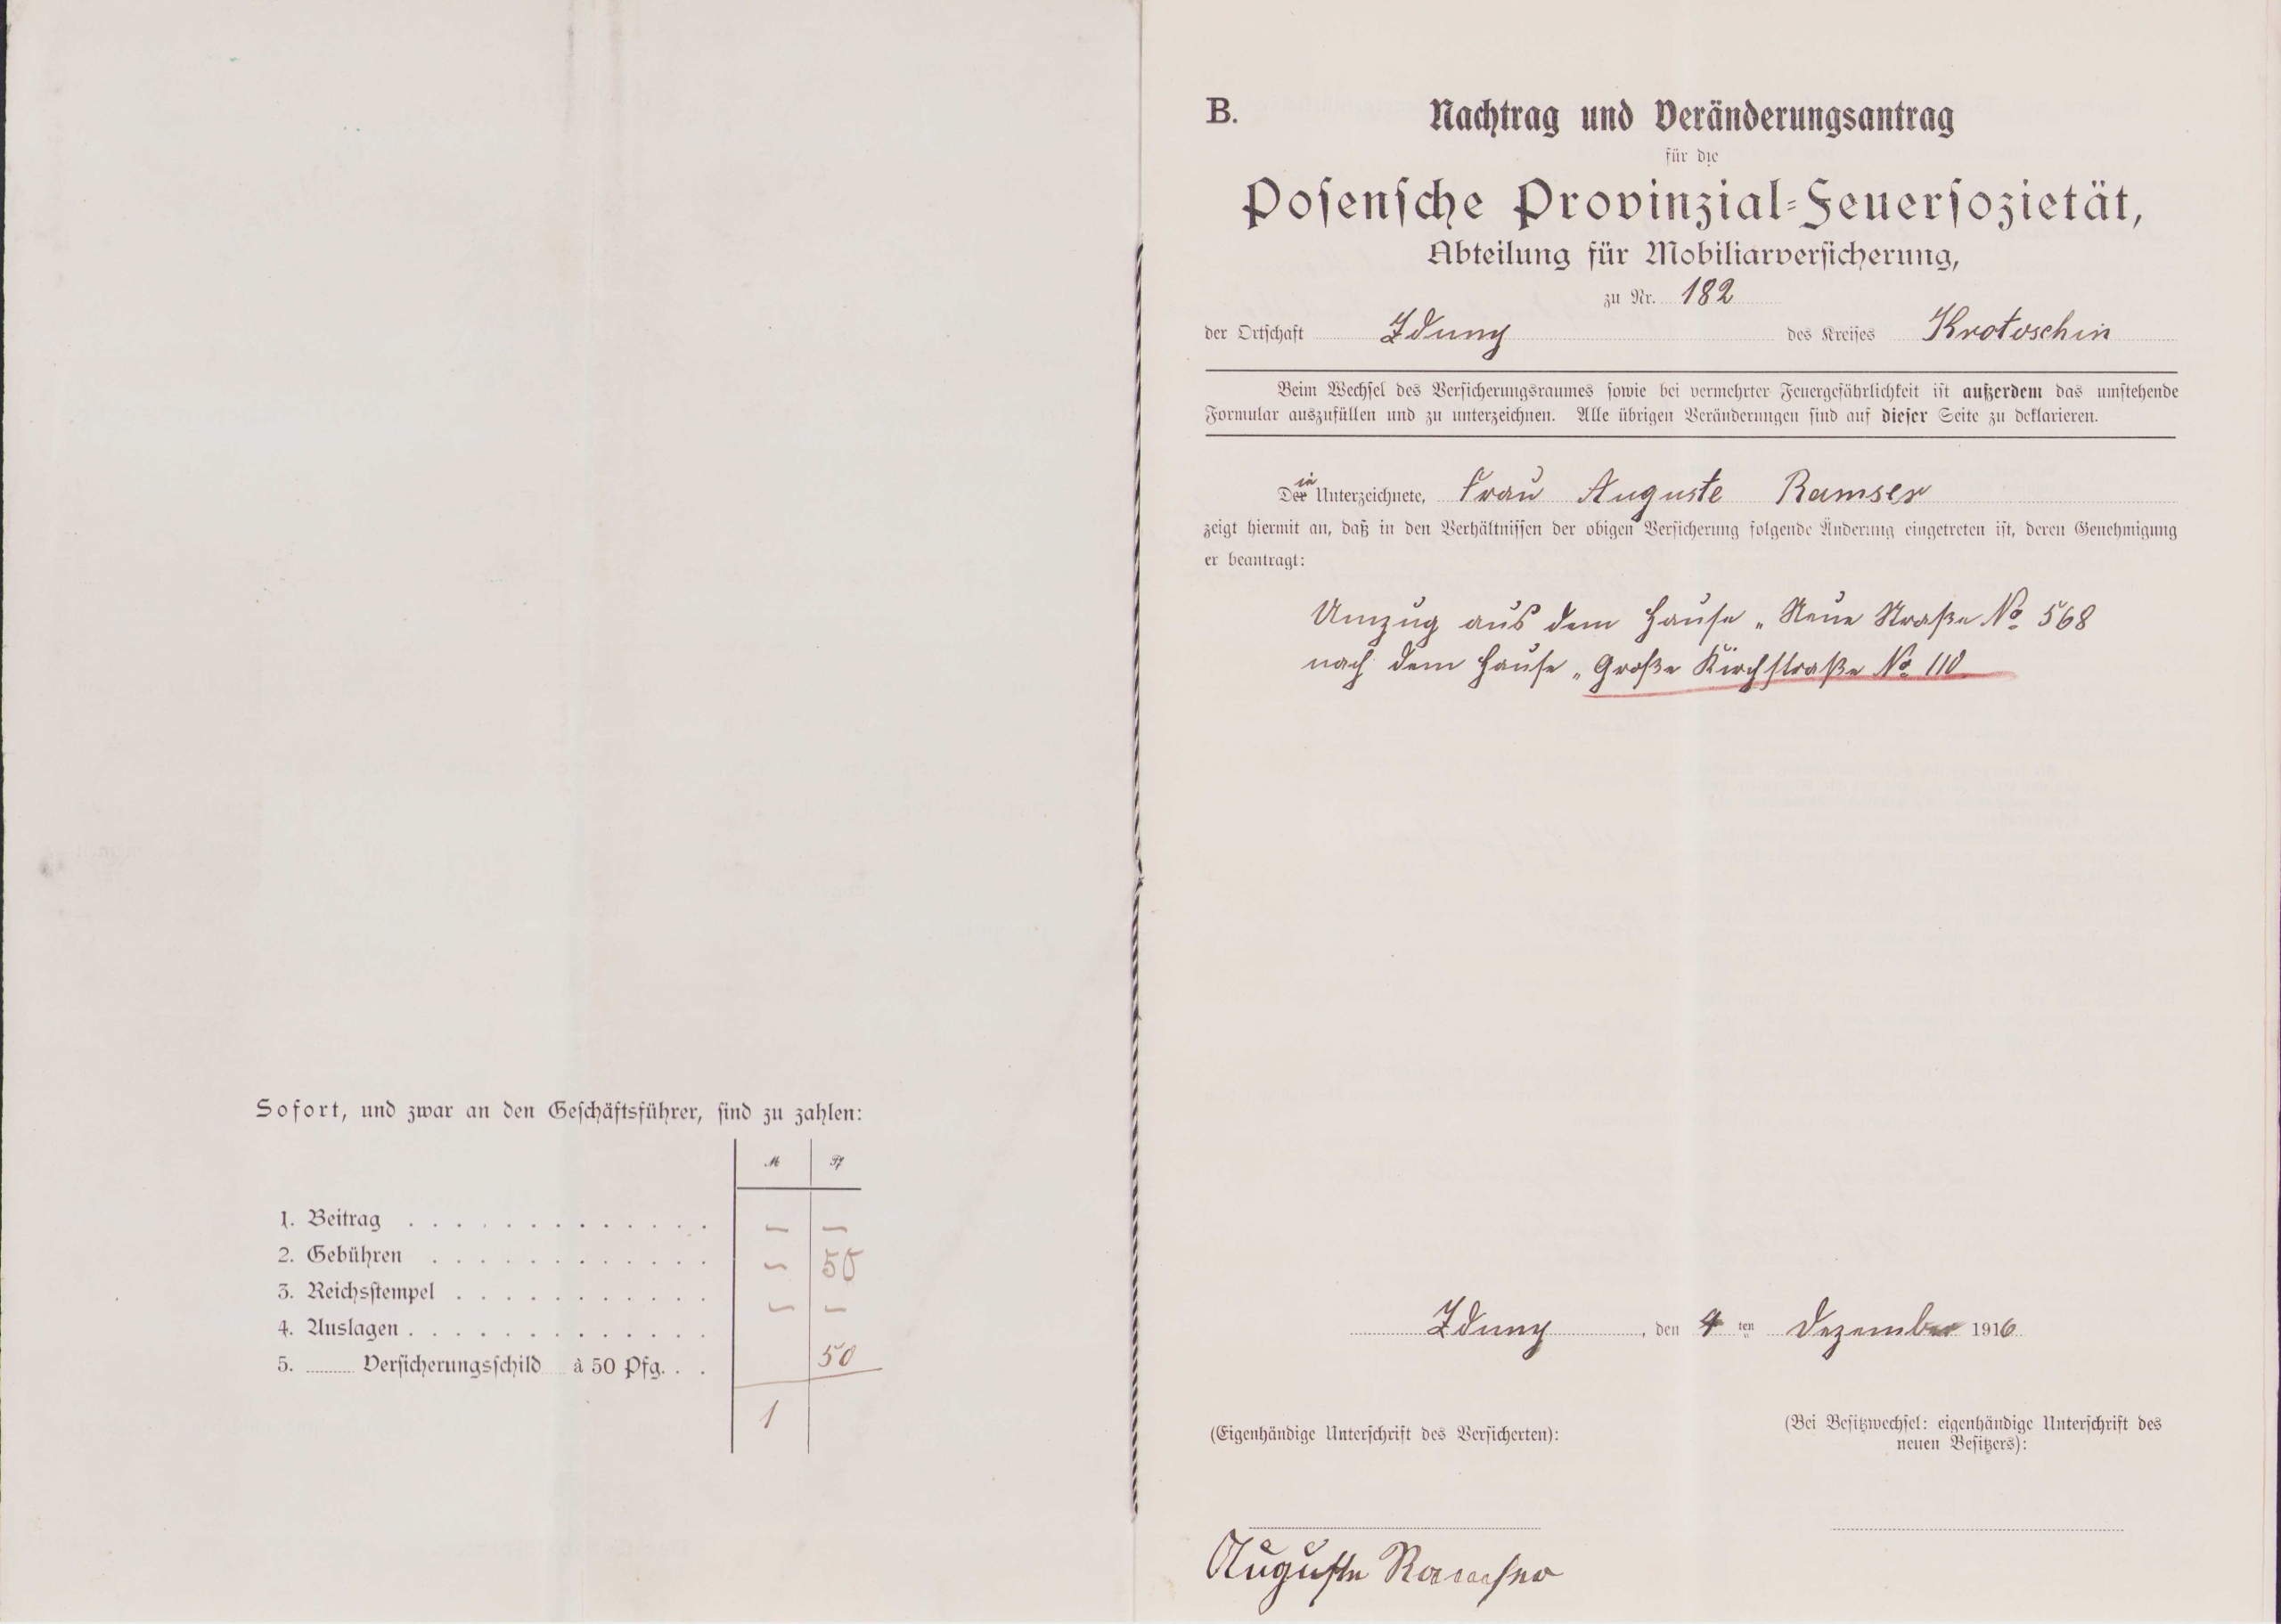 Sofort, und zwar an den Geschäftsführer, sind zu zahlen:
M Pf
1. Beitrag . . . . . . . . . . . . . — —
2. Gebühren . . . . . . . . . . . . — 50
3. Reichsstempel . . . . . . . . . . . — —
4. Auslagen . . . . . . . . . . . . .
5. ........ Versicherungsschild à 50 Pfg. . . 50
1
B. Nachtrag und Veränderungsantrag
für die
Posensche Provinzial-Feuersozietät,
Abteilung für Mobiliarversicherung,
zu Nr. 182
der Ortschaft Zduny des Kreises Krotoschin
Beim Wechsel des Versicherungsraumes sowie bei vermehrter Feuergefährlichkeit ist außerdem das umstehende
Formular auszufüllen und zu unterzeichnen. Alle übrigen Veränderungen sind auf dieser Seite zu deklarieren.
ie
Der Unterzeichnete, Frau Auguste Ramser
zeigt hiermit an, daß in den Verhältnissen der obigen Versicherung folgende Änderung eingetreten ist, deren Genehmigung
er beantragt:
Umzug aus dem Hause „Neue Straße No 568
nach dem Hause „Große Kirchstraße No 110
Zduny, den 4 ten Dezember 1916
(Eigenhändige Unterschrift des Versicherten):
(Bei Besitzwechsel: eigenhändige Unterschrift des
neuen Besitzers):
Auguste Ramser